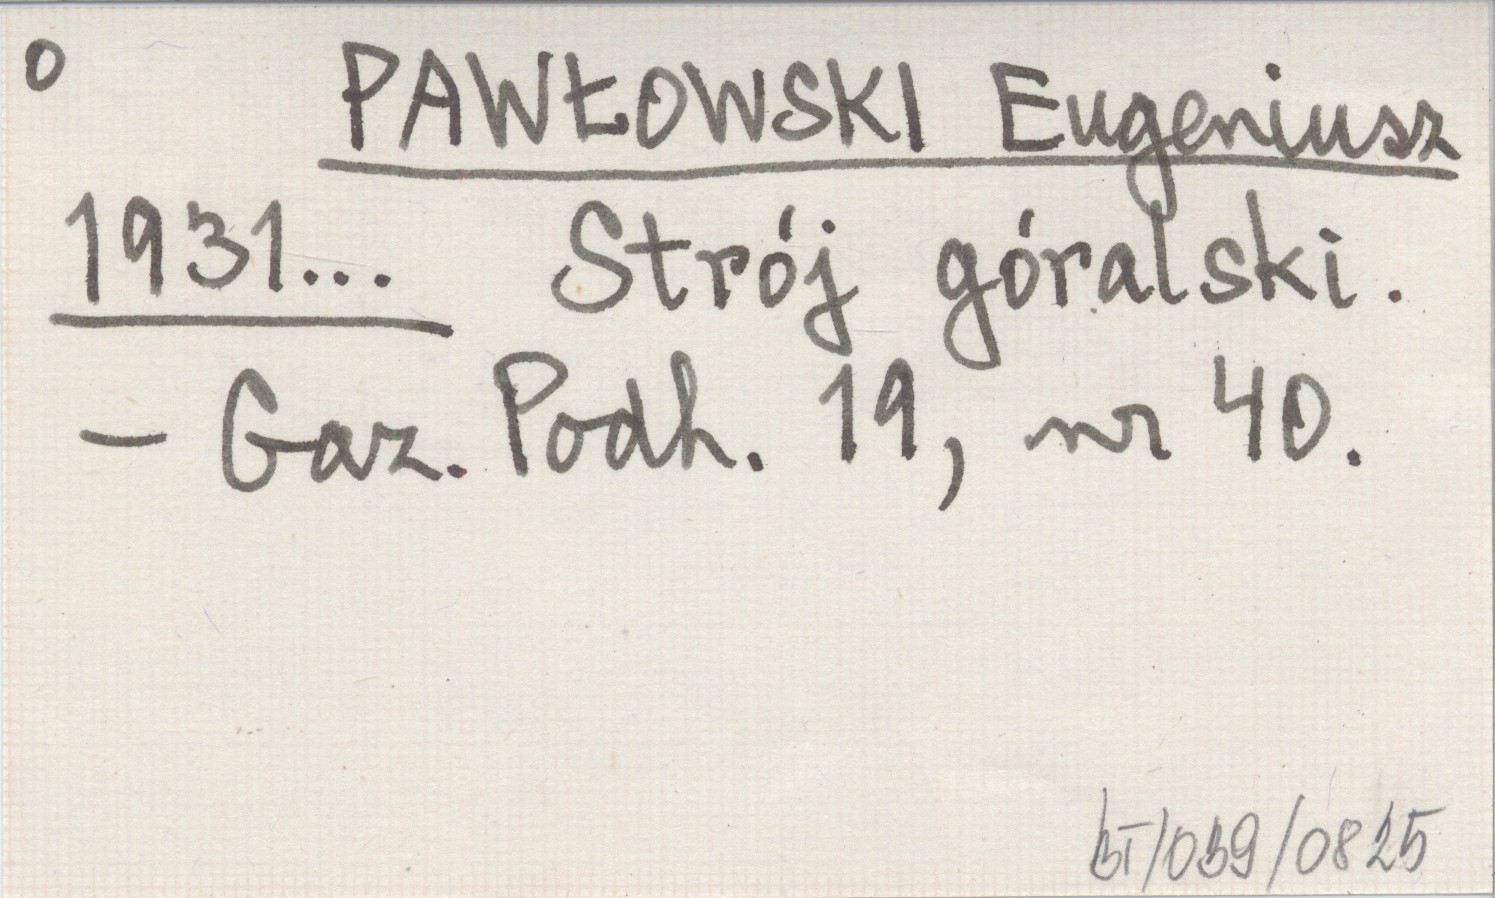 o PAWŁOWSKI Eugeniusz
1931... Strój góralski.
- Gaz. Podh. 19, nr 40.
BT/039/0825